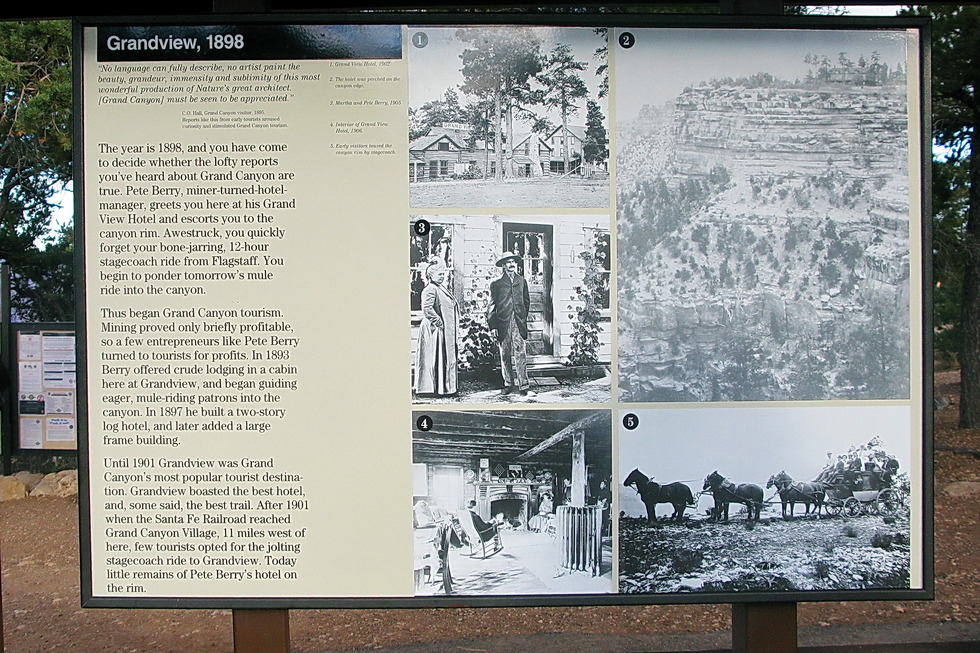 Grandview, 1898
"No language can fully describe, no artist paint the
beauty, grandeur, immensity and sublimity of this most
wonderful production of Nature's great architect.
[Grand Canyon] must be seen to be appreciated."
C.O. Hall, Grand Canyon visitor, 1895.
Reports like this from early tourists aroused
curiosity and stimulated Grand Canyon tourism.
The year is 1898, and you have come
to decide whether the lofty reports
you've heard about Grand Canyon are
true. Pete Berry, miner-turned-hotel-
manager, greets you here at his Grand
View Hotel and escorts you to the
canyon rim. Awestruck, you quickly
forget your bone-jarring, 12-hour
stagecoach ride from Flagstaff. You
begin to ponder tomorrow's mule
ride into the canyon.
Thus began Grand Canyon tourism.
Mining proved only briefly profitable,
so a few entrepreneurs like Pete Berry
turned to tourists for profits. In 1893
Berry offered crude lodging in a cabin
here at Grandview, and began guiding
eager, mule-riding patrons into the
canyon. In 1897 he built a two-story
log hotel, and later added a large
frame building.
Until 1901 Grandview was Grand
Canyon's most popular tourist destina-
tion. Grandview boasted the best hotel,
and, some said, the best trail. After 1901
when the Santa Fe Railroad reached
Grand Canyon Village, 11 miles west of
here, few tourists opted for the jolting
stagecoach ride to Grandview. Today
little remains of Pete Berry's hotel on
the rim.
1. Grand View Hotel, 1902.
2. The hotel was perched on the
canyon edge.
3. Martha and Pete Berry, 1905
4. Interior of Grand View
Hotel, 1906.
5. Early visitors toured the
canyon rim by stagecoach.
1
2
3
4
5